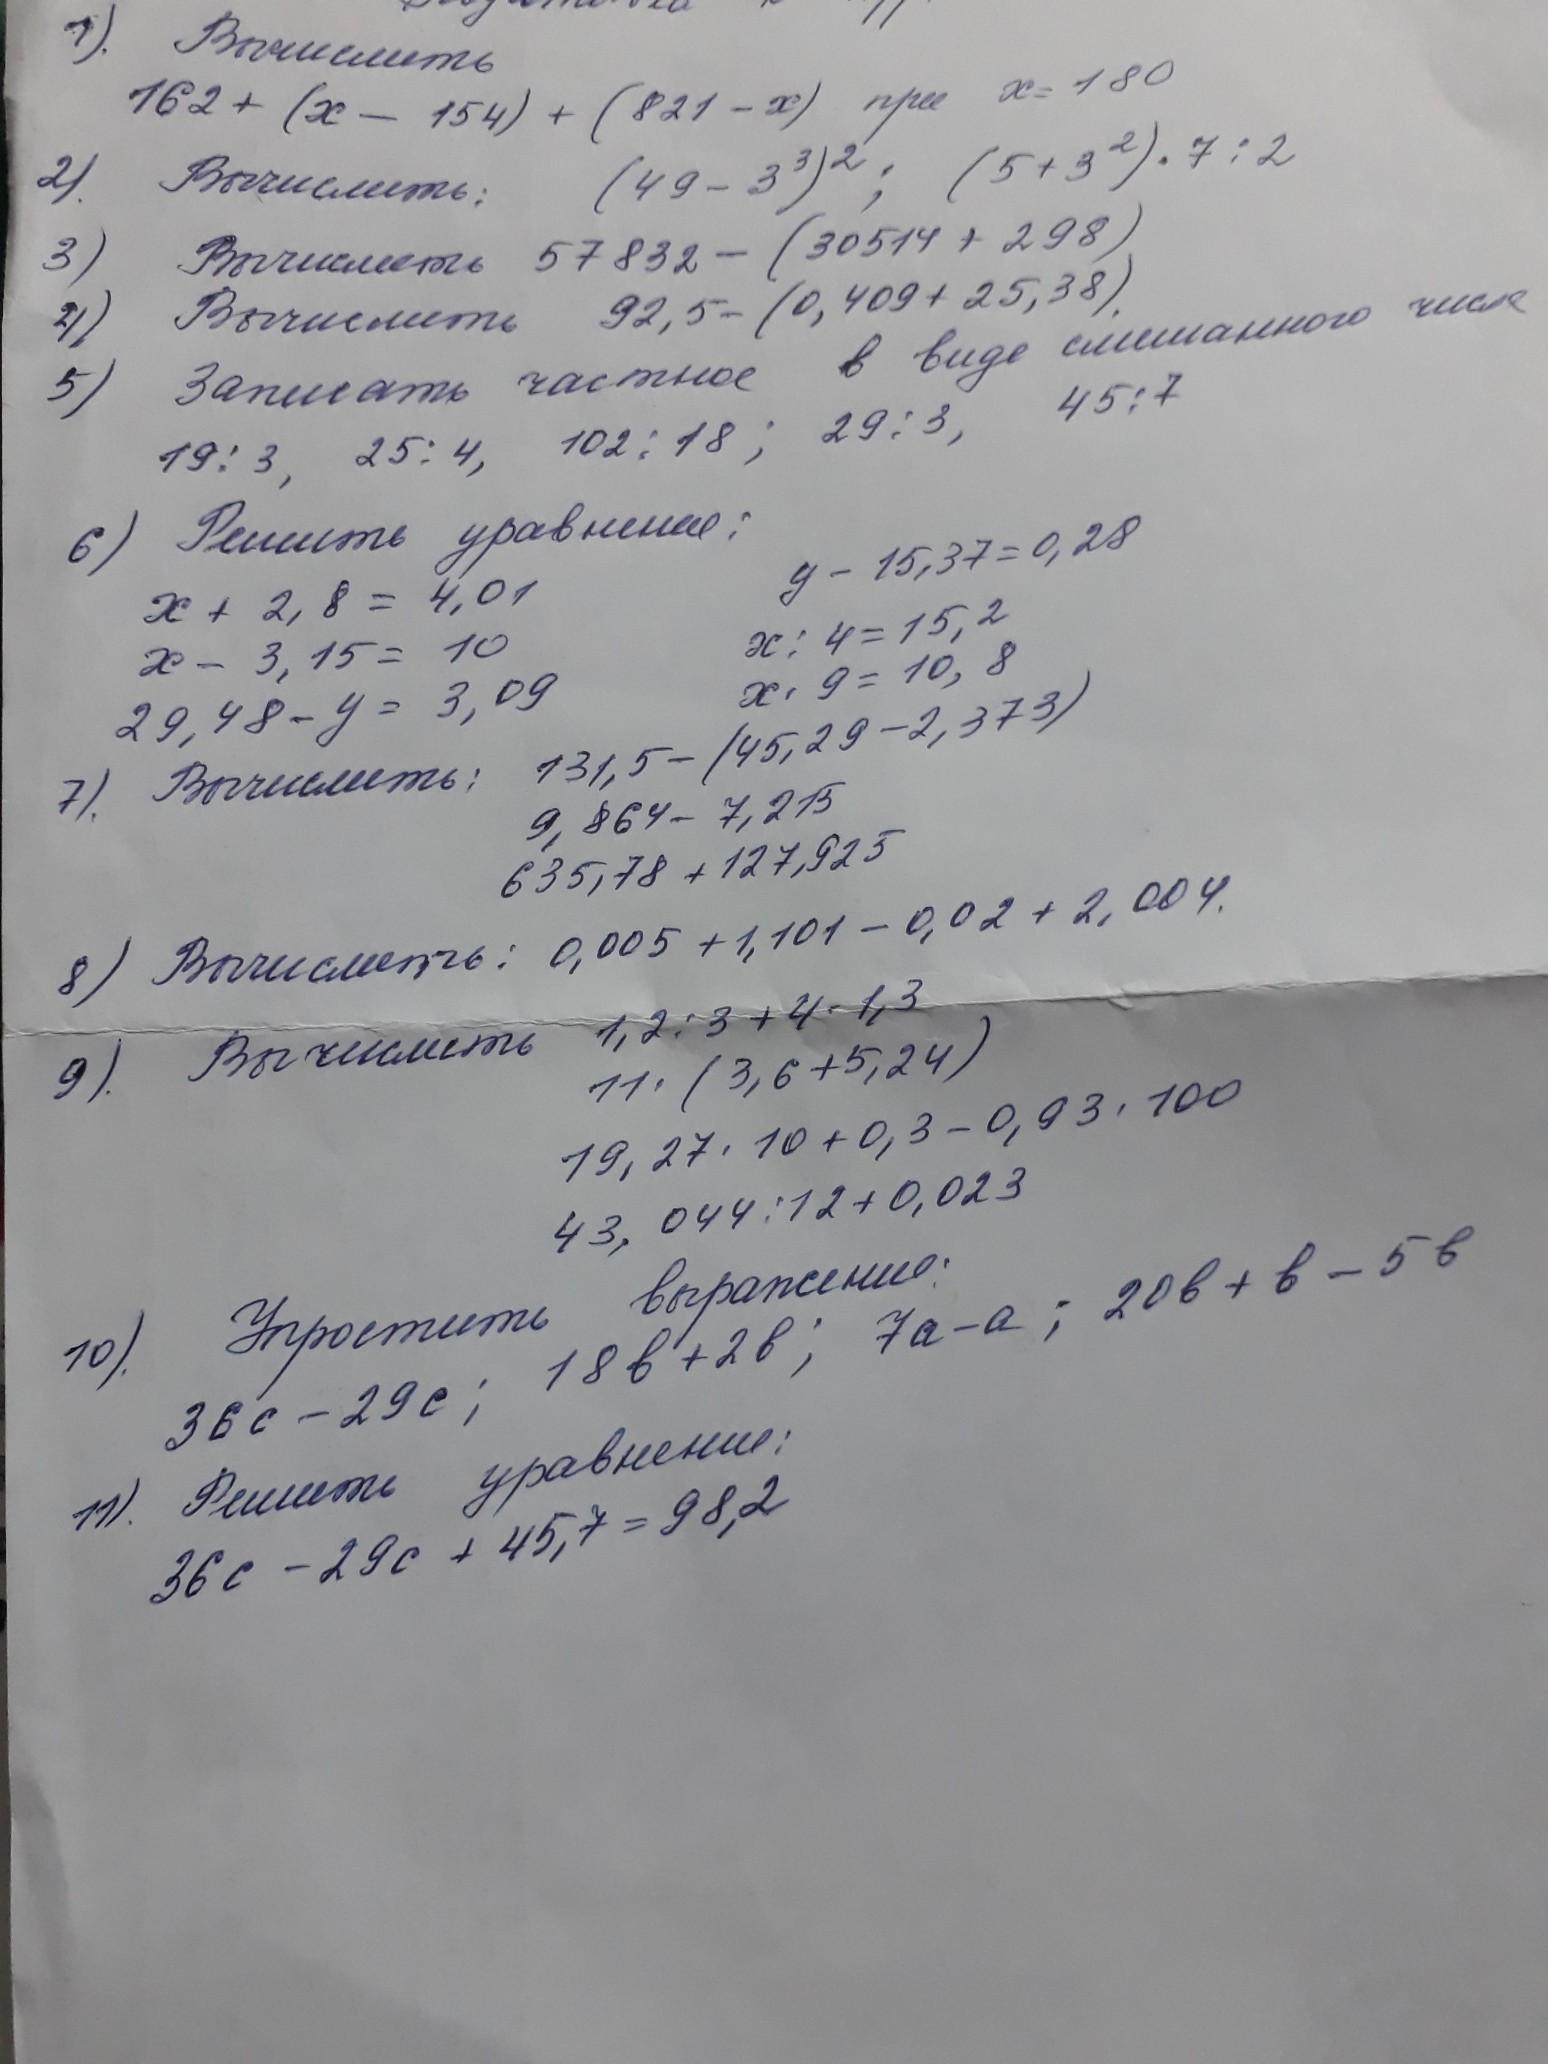 1). Вычислить
162 + (x − 154) + (821 − x) при x = 180
2). Вычислить: (49 − 3³)²; (5 + 3²) · 7 : 2
3) Вычислить 57832 − (30514 + 298)
4) Вычислить 92,5 − (0,409 + 25,38).
5) Записать частное в виде смешанного числа
19 : 3, 25 : 4, 102 : 18; 29 : 3, 45 : 7
6) Решить уравнение:
x + 2,8 = 4,01 y − 15,37 = 0,28
x − 3,15 = 10 x : 4 = 15,2
29,48 − y = 3,09 x · 9 = 10,8
7). Вычислить: 131,5 − (45,29 − 2,373)
9,864 − 7,215
635,78 + 127,925
8) Вычислить: 0,005 + 1,101 − 0,02 + 2,004.
9). Вычислить 1,2 : 3 + 4 · 1,3
11 · (3,6 + 5,24)
19,27 · 10 + 0,3 − 0,93 · 100
43,044 : 12 + 0,023
10). Упростить выражение:
36c − 29c; 18в + 2в; 7а − а; 20в + в − 5в
11). Решить уравнение:
36c − 29c + 45,7 = 98,2